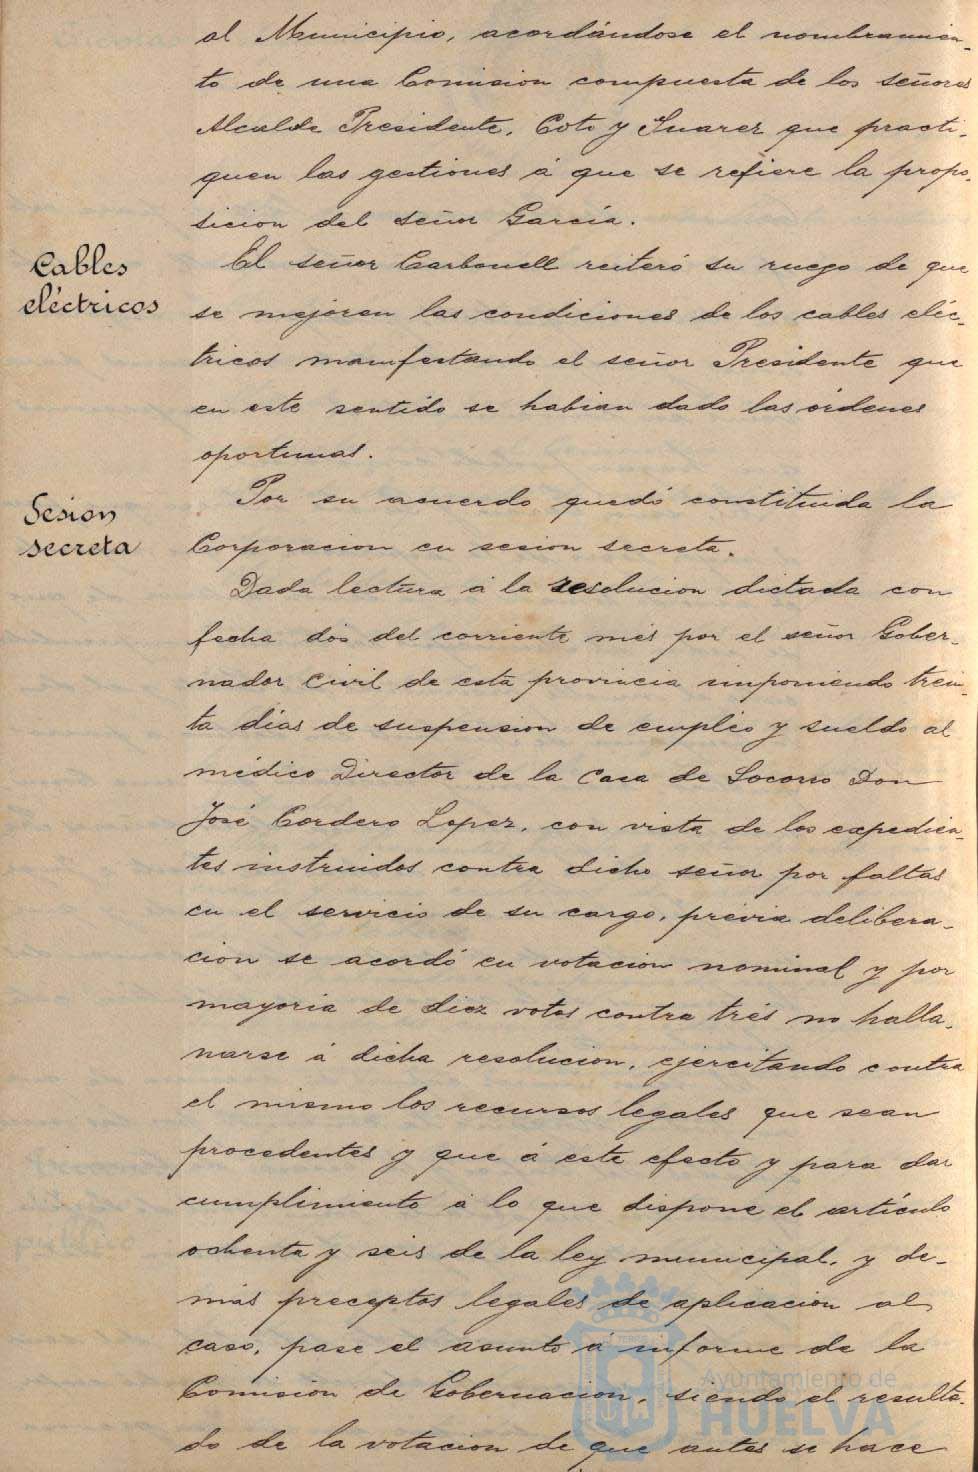 al Municipio, acordándose el nombramien-
to de una Comision compuesta de los señores
Alcalde Presidente, Coto y Suarez que practi-
quen las gestiones á que se refiere la propo-
sicion del señor García.
Cables
eléctricos
El señor Carbonell reiteró su ruego de que
se mejoren las condiciones de los cables eléc-
tricos manifestando el señor Presidente que
en este sentido se habian dado las órdenes
oportunas.
Sesion
secreta
Por su acuerdo quedó constituida la
Corporacion en sesion secreta.
Dada lectura á la resolucion dictada con
fecha dos del corriente més por el señor Gober-
nador Civil de esta provincia imponiendo trein-
ta dias de suspension de empleo y sueldo al
médico Director de la Casa de Socorro Don
José Cordero Lopez, con vista de los expedien-
tes instruidos contra dicho señor por faltas
en el servicio de su cargo, prévia delibera-
cion se acordó en votacion nominal y por
mayoria de diez votos contra trés no halla-
narse á dicha resolucion, ejercitando contra
el mismo los recursos legales que sean
procedentes y que á este efecto y para dar
cumplimiento á lo que dispone el artículo
ochenta y seis de la ley municipal, y de-
mas preceptos legales de aplicacion al
caso, pase el asunto á informe de la
Comision de Gobernacion, siendo el resulta-
do de la votacion de que antes se hace
Ayuntamiento de
HUELVA